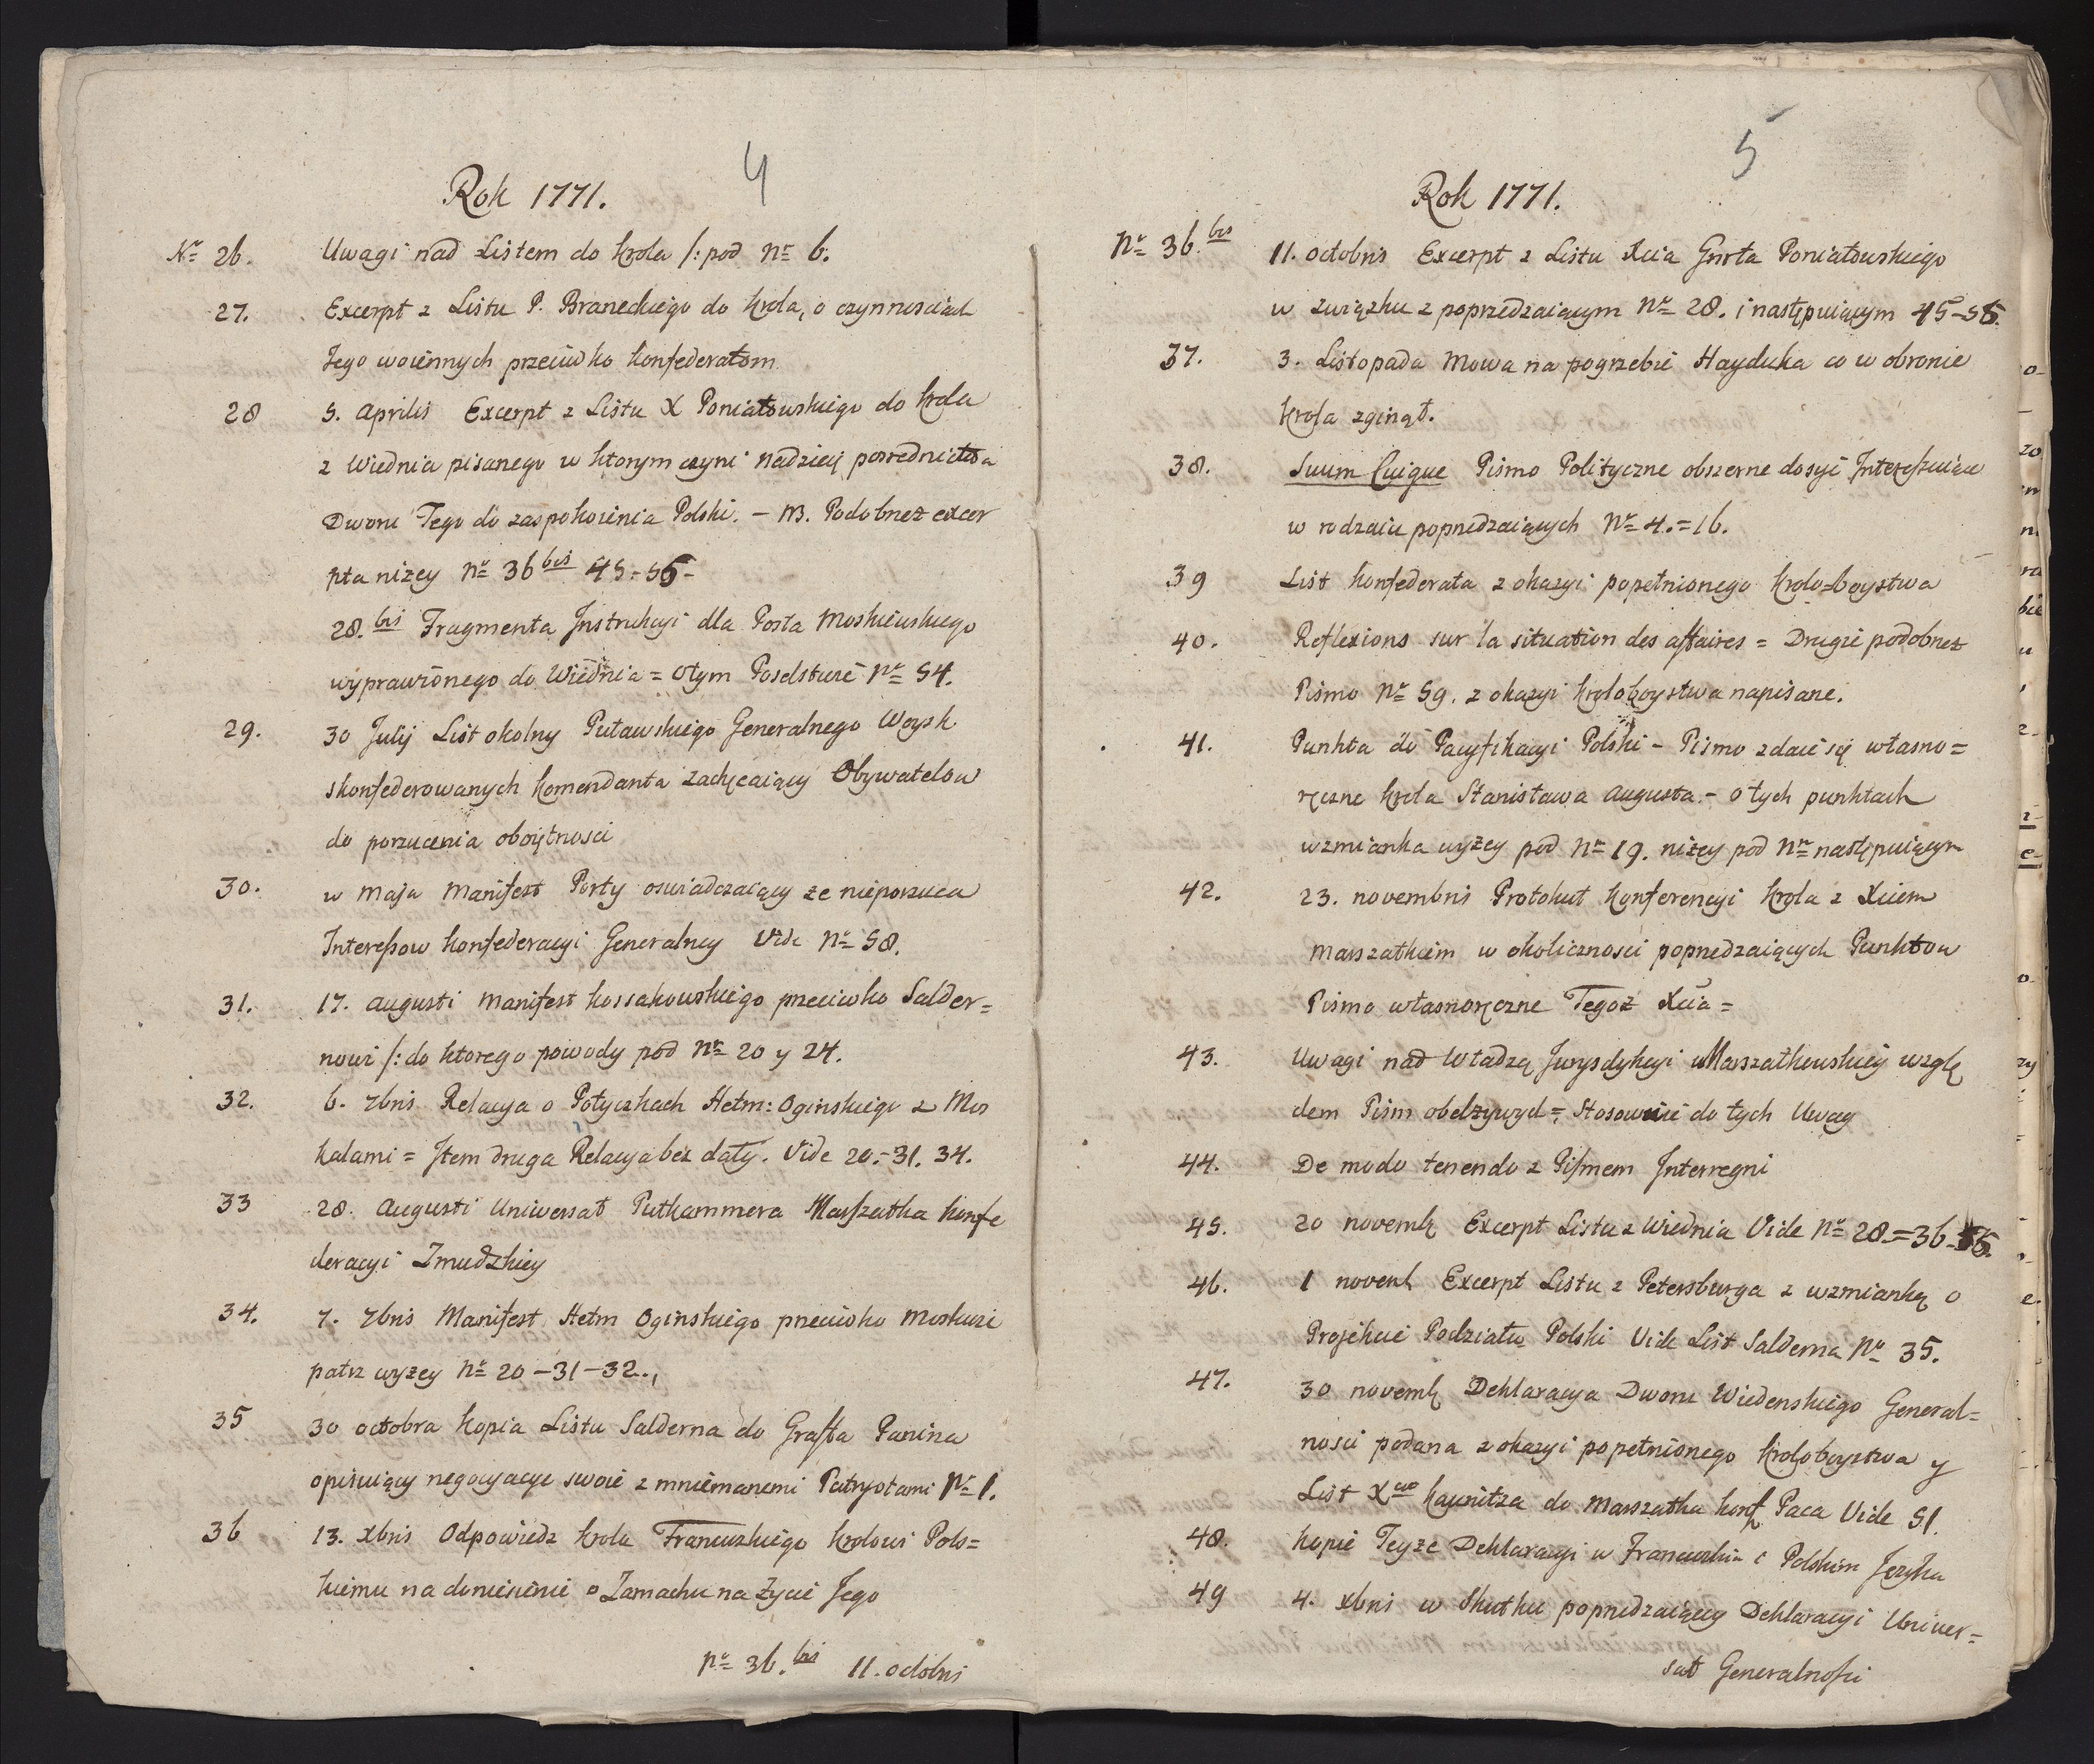 4
Rok 1771.
Nr 26. Uwagi nad Listem do Krola /: pod Nr 6.
27. Excerpt z Listu P. Braneckiego do Krola, o czynnosciach
Jego woiennych przeciwko Konfederatom
28 5. Aprilis Excerpt z Listu X Poniatowskiego do Krola
z Wiednia pisanego w ktorym czyni nadzieię posrednictwa
Dworu Tego do zaspokoienia Polski. – NB. Podobnez excer
pta nizey Nr 36 bis 45.–56–
28. bis Fragmenta Jnstrukcyi dla Posła Moskiewskiego
wyprawionego do Wiednia = o tym Poselstwie Nr 54.
29. 30 Julij List okolny Puławskiego Generalnego Woysk
skonfederowanych Komendanta zachęcaiący Obywatelow
do porzucenia oboiętnosci
30. w Maja Manifest Porty oswiadczaiący ze nieporzuca
Interessow Konfederacyi Generalney Vide Nr 58.
31. 17. Augusti Manifest Kossakowskiego przeciwko Salder=
nowi /: do ktorego powody pod Nr 20 y 24.
32. 6. 7bris Relacya o Potyczkach Hetm: Oginskiego z Mos
kalami = Jtem druga Relacya bez daty. Vide 20.–31. 34.
33 28. Augusti Uniwersał Putkammera Marszałka Konfe
deracyi Zmudzkiey
34. 7. 7bris Manifest Hetm Oginskiego przeciwko Moskwie
patrz wyzey Nr 20–31–32.,
35 30 octobra Kopia Listu Salderna do Graffa Panina
opisuiący negocyacye swoie z mniemanemi Patryotami Nr 1.
36 13. Xbris Odpowiedz Krola Francuzkiego Krolowi Pols=
kiemu na doniesienie o Zamachu na Zycie Jego
Nr 36. bis 11. octobris
5
Rok 1771.
Nr 36. bis 11. octobris Excerpt z Listu Xcia Gnrła Poniatowskiego
w związku z poprzedzaiącym Nr 28. i następuiącym 45–56.
37. 3. Listopada Mowa na pogrzebie Hayduka co w obronie
Krola zginął.
38. Suum Cuique Pismo Polityczne obszerne dosyć Jnteressuiące
w rodzaiu poprzedzaiących Nr 4.=16.
39 List Konfederata z okazyi popełnionego Krolo=boystwa
40. Reflexions sur la situation des affaires = Drugie podobnez
Pismo Nr 59. z okazyi Kroloboystwa napisane.
41. Punkta do Pacyfikacyi Polski – Pismo zdaie się własno=
ręczne Krola Stanisława Augusta.– o tych punktach
wzmianka wyzey pod Nr 19. nizey pod Nrm następuiącym
42. 23. novembris Protokuł Konferencyi Krola z Xciem
Marszałkiem w okolicznosci poprzedzaiących Punktow
Pismo własnoręczne Tegoz Xcia =
43. Uwagi nad Władzą Jurysdykcyi Marszałkowskiey wzglę
dem Pism obelzywych = Stosownie do tych Uwag
44. De modo tenendo z Pismem Jnterregni
45. 20 novemb Excerpt Listu z Wiednia Vide Nr 28.=36–56.
46. 1 novemb Excerpt Listu z Petersburga z wzmianką o
Projekcie Podziału Polski Vide List Salderna Nr 35.
47. 30 novemb Deklaracya Dworu Wiedenskiego General=
nosci podana z okazyi popełnionego Kroloboystwa y
List Xcia Kaunitza do Marszałka Konf Paca Vide 51.
48. Kopie Teyze Deklaracyi w Francuzkim i Polskim Języku
49 4. Xbris w Skutku poprzedzaiącey Deklaracyi Uniwer=
sał Generalnosci